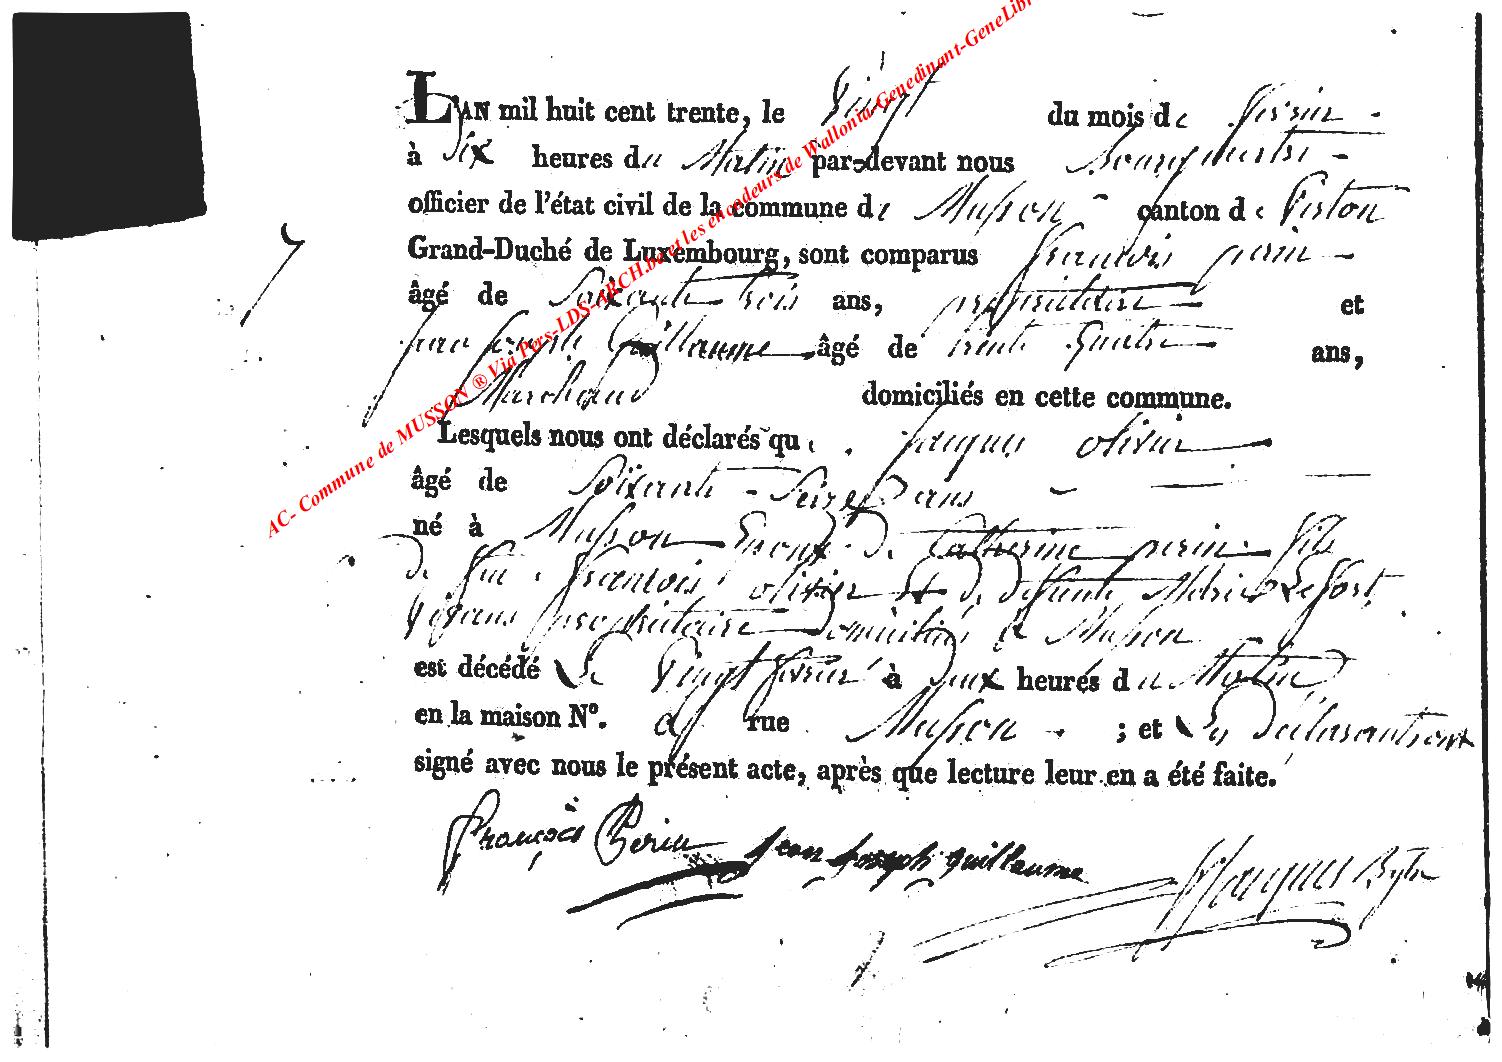 L'AN mil huit cent trente, le vingt du mois de fevrier -
à Dix heures du Matin par-devant nous Bourgmestre -
officier de l'état civil de la commune de Musson - canton de Virton
Grand-Duché de Luxembourg, sont comparus francois perin -
âgé de Soixante trois ans, propriétaire et
jean joseph Guillaume âgé de trente quatre ans,
Marchand domiciliés en cette commune.
Lesquels nous ont déclarés que jacques olivier
âgé de Soixante - Seize ans -
né à Musson Epoux de Catherine perin fils
de feu francois olivier et de defunte Marie Leffort
vivans propriétaire Domiciliés à Musson
est décédé le vingt fevrier à Deux heures du Matin
en la maison N°. rue Musson - ; et les Déclarants ont
signé avec nous le présent acte, après que lecture leur en a été faite.
François Perin Jean Joseph guillaume Jacques
7
AC- Commune de MUSSON ® Via Pers-LDS-ARCH.be et les encodeurs de Wallonia-Genedinant-GeneLibr